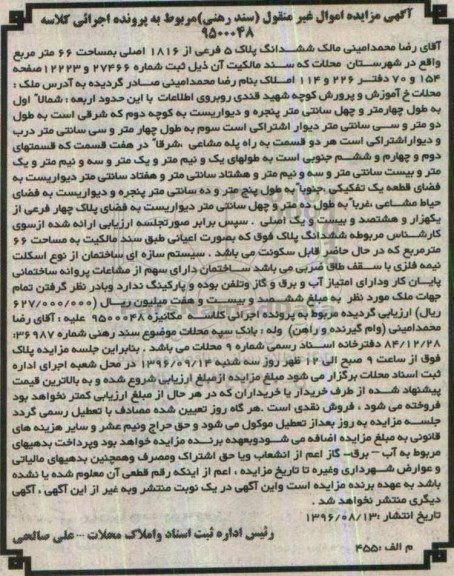 آگهی مزایده اموال غیر منقول (سند رهنی)مربوط به پرونده اجرائی کلاسه
۹۵۰۰۰۴۸
آقای رضا محمدامینی مالک ششدانگ پلاک ۵ فرعی از ۱۸۱۶ اصلی بمساحت ۶۶ متر مربع
واقع در شهرستان محلات که سند مالکیت آن ذیل ثبت شماره ۲۷۴۶۶ و ۱۲۲۲۳صفحه
۱۵۴ و ۷۰ دفتر ۲۲۶ و ۱۱۴ املاک بنام رضا محمدامینی صادر گردیده به آدرس ملک :
محلات خ آموزش و پرورش کوچه شهید قندی روبروی اطلاعات با این حدود اربعه : شمالا" اول
به طول چهارمتر و چهل سانتی متر پنجره و دیواریست به کوچه دوم که شرقی است به طول
دو متر و سی سانتی متر دیوار اشتراکی است سوم به طول چهار متر و سی سانتی متر درب
و دیواراشتراکی است هر دو قسمت به راه پله مشاعی ،شرقا" در هفت قسمت که قسمتهای
دوم و چهارم و ششم جنوبی است به طولهای یک و نیم متر و یک متر و سه و نیم متر و یک
متر و بیست سانتی متر و سه و نیم متر و هشتاد سانتی متر و هفتاد سانتی متر دیواریست به
فضای قطعه یک تفکیکی ،جنوبا" به طول پنج متر و ده سانتی متر پنجره و دیواریست به فضای
حیاط مشاعی ،غربا" به طول ده متر و چهل سانتی متر دیواریست به فضای پلاک چهار فرعی از
یکهزار و هشتصد و بیست و یک اصلی . سپس برابر صورتجلسه ارزیابی ارائه شده ازسوی
کارشناس مربوطه ششدانگ پلاک فوق که بصورت اعیانی طبق سند مالکیت به مساحت ۶۶
مترمربع که در حال حاضر قابل سکونت می باشد . سیستم سازه ای ساختمان از نوع اسکلت
نیمه فلزی با سقف طاق ضربی می باشد ساختمان دارای سهم از مشاعات پروانه ساختمانی
پایان کار ودارای امتیاز آب و برق و گاز وتلفن بوده و پارکینگ ندارد وبادر نظر گرفتن تمام
جهات ملک مورد نظر به مبلغ ششصد و بیست و هفت میلیون ریال (۶۲۷/۰۰۰/۰۰۰
ریال) ارزیابی گردیده مربوط به پرونده اجرائی کلاسه مکانیزه ۹۵۰۰۰۴۸ علیه : آقای رضا
محمدامینی (وام گیرنده و راهن) وله : بانک سپه محلات موضوع سند رهنی شماره ۳۶۹۸۷:
۸۴/۱۲/۲۸ دفترخانه اسناد رسمی شماره ۹ محلات می باشد . بنابراین جلسه مزایده پلاک
فوق از ساعت ۹ صبح الی ۱۲ ظهر روز سه شنبه ۱۳۹۶/۰۹/۱۴ در محل شعبه اجرای اداره
ثبت اسناد محلات برگزار می شود مبلغ مزایده ازمبلغ ارزیابی شروع شده و به بالاترین قیمت
پیشنهاد شده از طرف خریدار یا خریداران که در هر حال از مبلغ ارزیابی کمتر نخواهد بود
فروخته می شود ، فروش نقدی است .هر گاه روز تعیین شده مصادف با تعطیل رسمی گردد
جلسه مزایده به روز بعداز تعطیل موکول می شود و حق حراج ونیم عشر و سایر هزینه های
قانونی به مبلغ مزایده اضافه می شودوبعهده برنده مزایده خواهد بود وپرداخت بدهیهای
مربوط به آب – برق– گاز اعم از انشعاب ویا حق اشتراک ومصرف وهمچنین بدهیهای مالیاتی
و عوارض شهرداری وغیره تا تاریخ مزایده ، اعم از اینکه رقم قطعی آن معلوم شده یا نشده
باشد به عهده برنده مزایده است واین آگهی در یک نوبت منتشر وبه غیر از این آگهی ، آگهی
دیگری منتشر نخواهد شد .
تاریخ انتشار :۱۳۹۶/۰۸/۱۳
رئیس اداره ثبت اسناد واملاک محلات – علی صالحی
م الف :۴۵۵